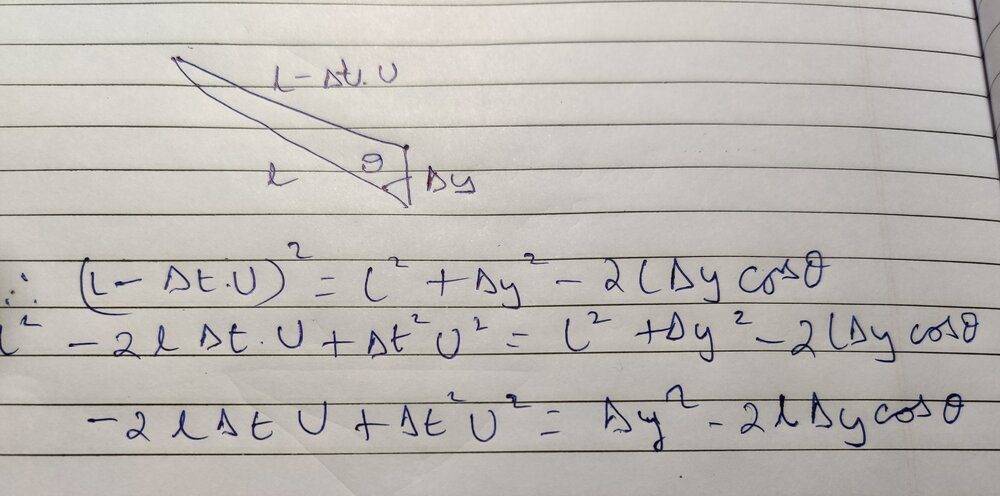 l - Δt.U
θ
l
Δy
∴ (l - Δt.U)² = l² + Δy² - 2lΔy cosθ
l² - 2lΔt.U + Δt²U² = l² + Δy² - 2lΔy cosθ
-2lΔtU + Δt²U² = Δy² - 2lΔy cosθ